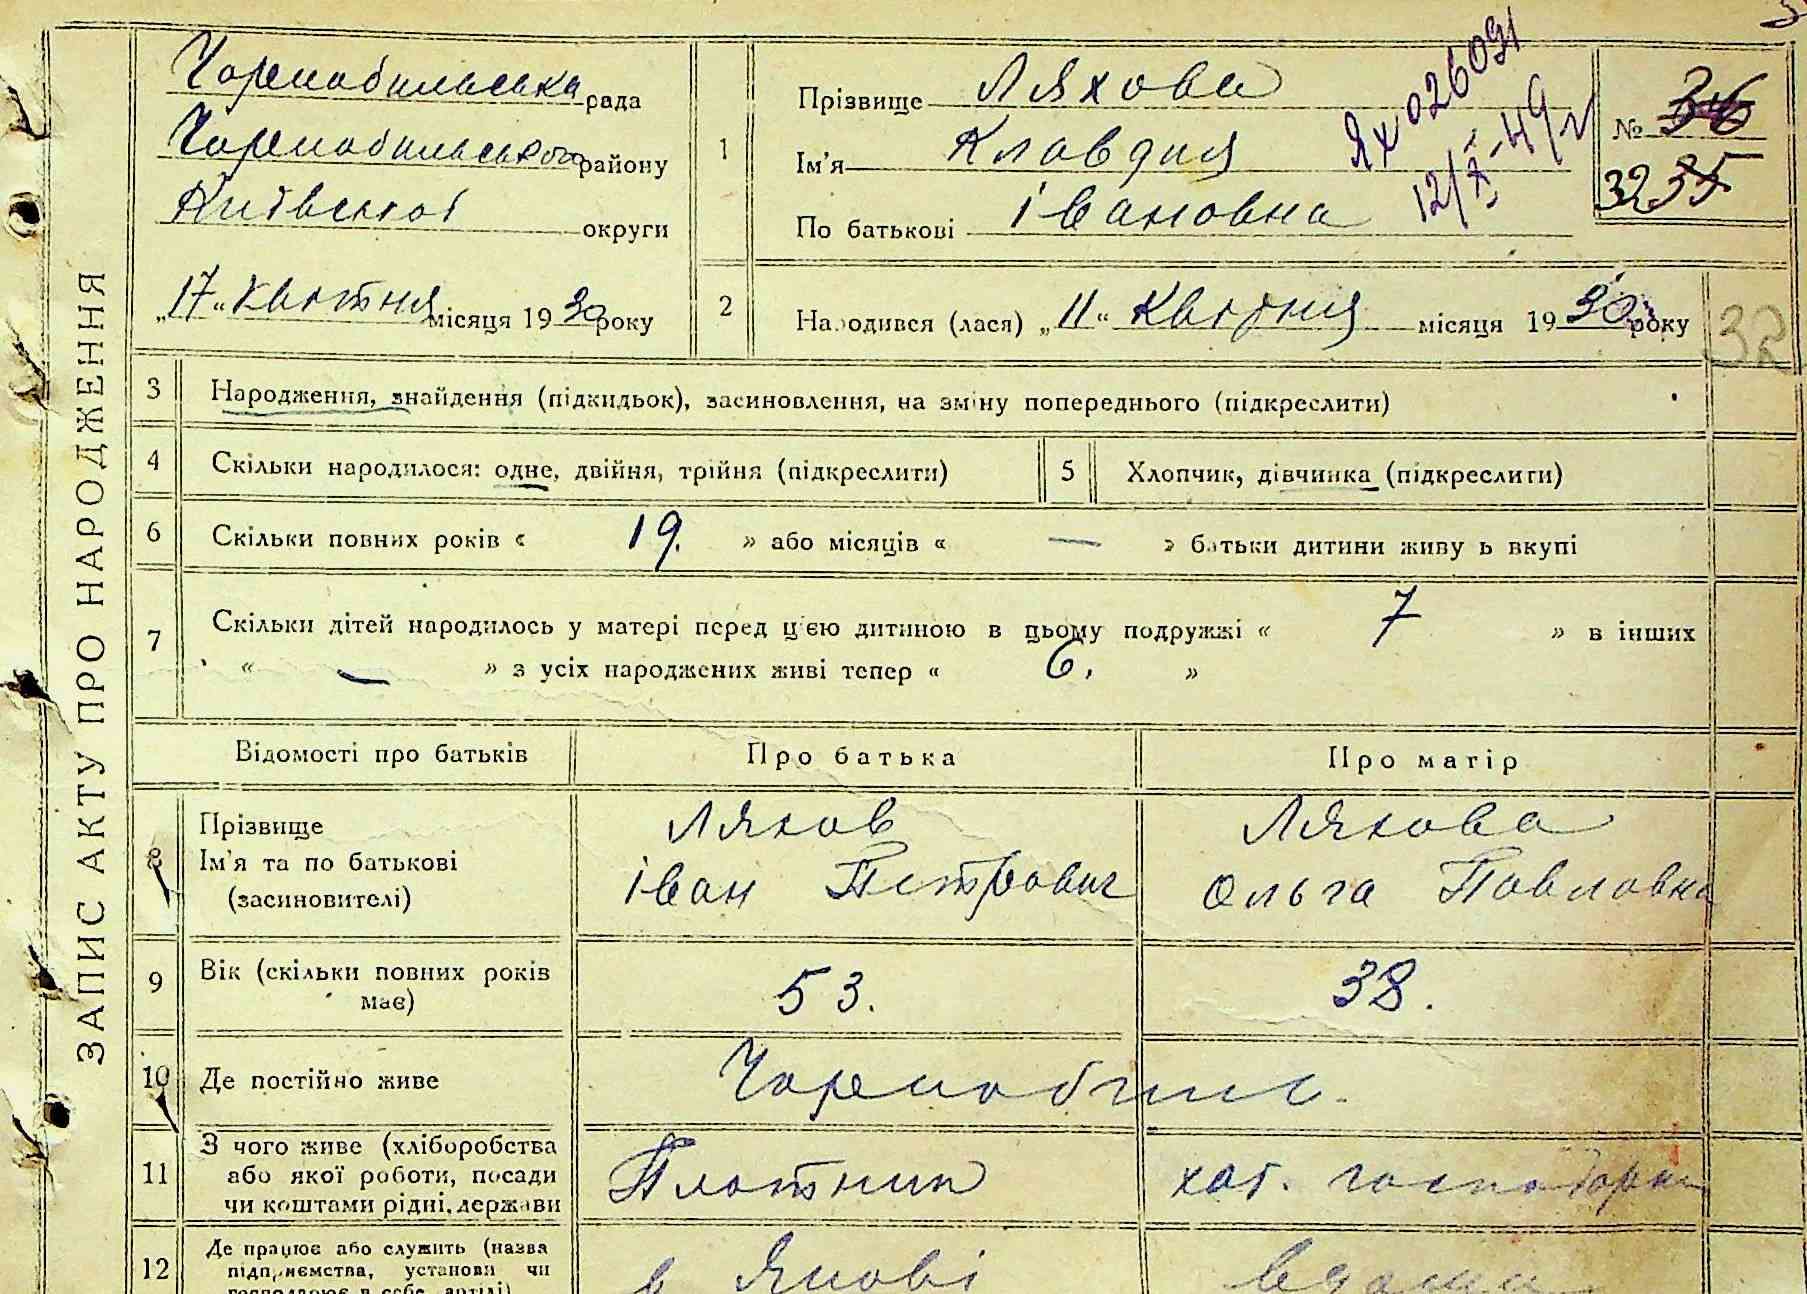 ЗАПИС АКТУ ПРО НАРОДЖЕННЯ
Чорнобильська рада
Чорнобильського району
Київської округи
„17“ квітня місяця 1930 року
1
Прізвище Ляхова
Ім'я Клавдия
По батькові Івановна
ЯХ 026091
12/X-49 г
№ 36
32 35
2
Народився (лася) „11“ Квітня місяця 1930 року
32
3 Народження, знайдення (підкидьок), засиновлення, на зміну попереднього (підкреслити)
4 Скільки народилося: одне, двійня, трійня (підкреслити)
5 Хлопчик, дівчинка (підкреслити)
6 Скільки повних років « 19. » або місяців « — » батьки дитини живуть вкупі
7 Скільки дітей народилось у матері перед цією дитиною в цьому подружжі « 7 » в інших
« — » з усіх народжених живі тепер « 6. »
Відомості про батьків
Про батька
Про матір
8 Прізвище
Ім'я та по батькові
(засиновителі)
Ляхов
Іван Петрович
Ляхова
Ольга Павловна
9 Вік (скільки повних років
має)
53.
38.
10 Де постійно живе
Чорнобиль.
11 З чого живе (хліборобства
або якої роботи, посади
чи коштами рідні, держави
Плотник
хат. господарка
12 Де працює або служить (назва
підприємства, установи чи
господарює в себе, артілі)
в Янові
вдома